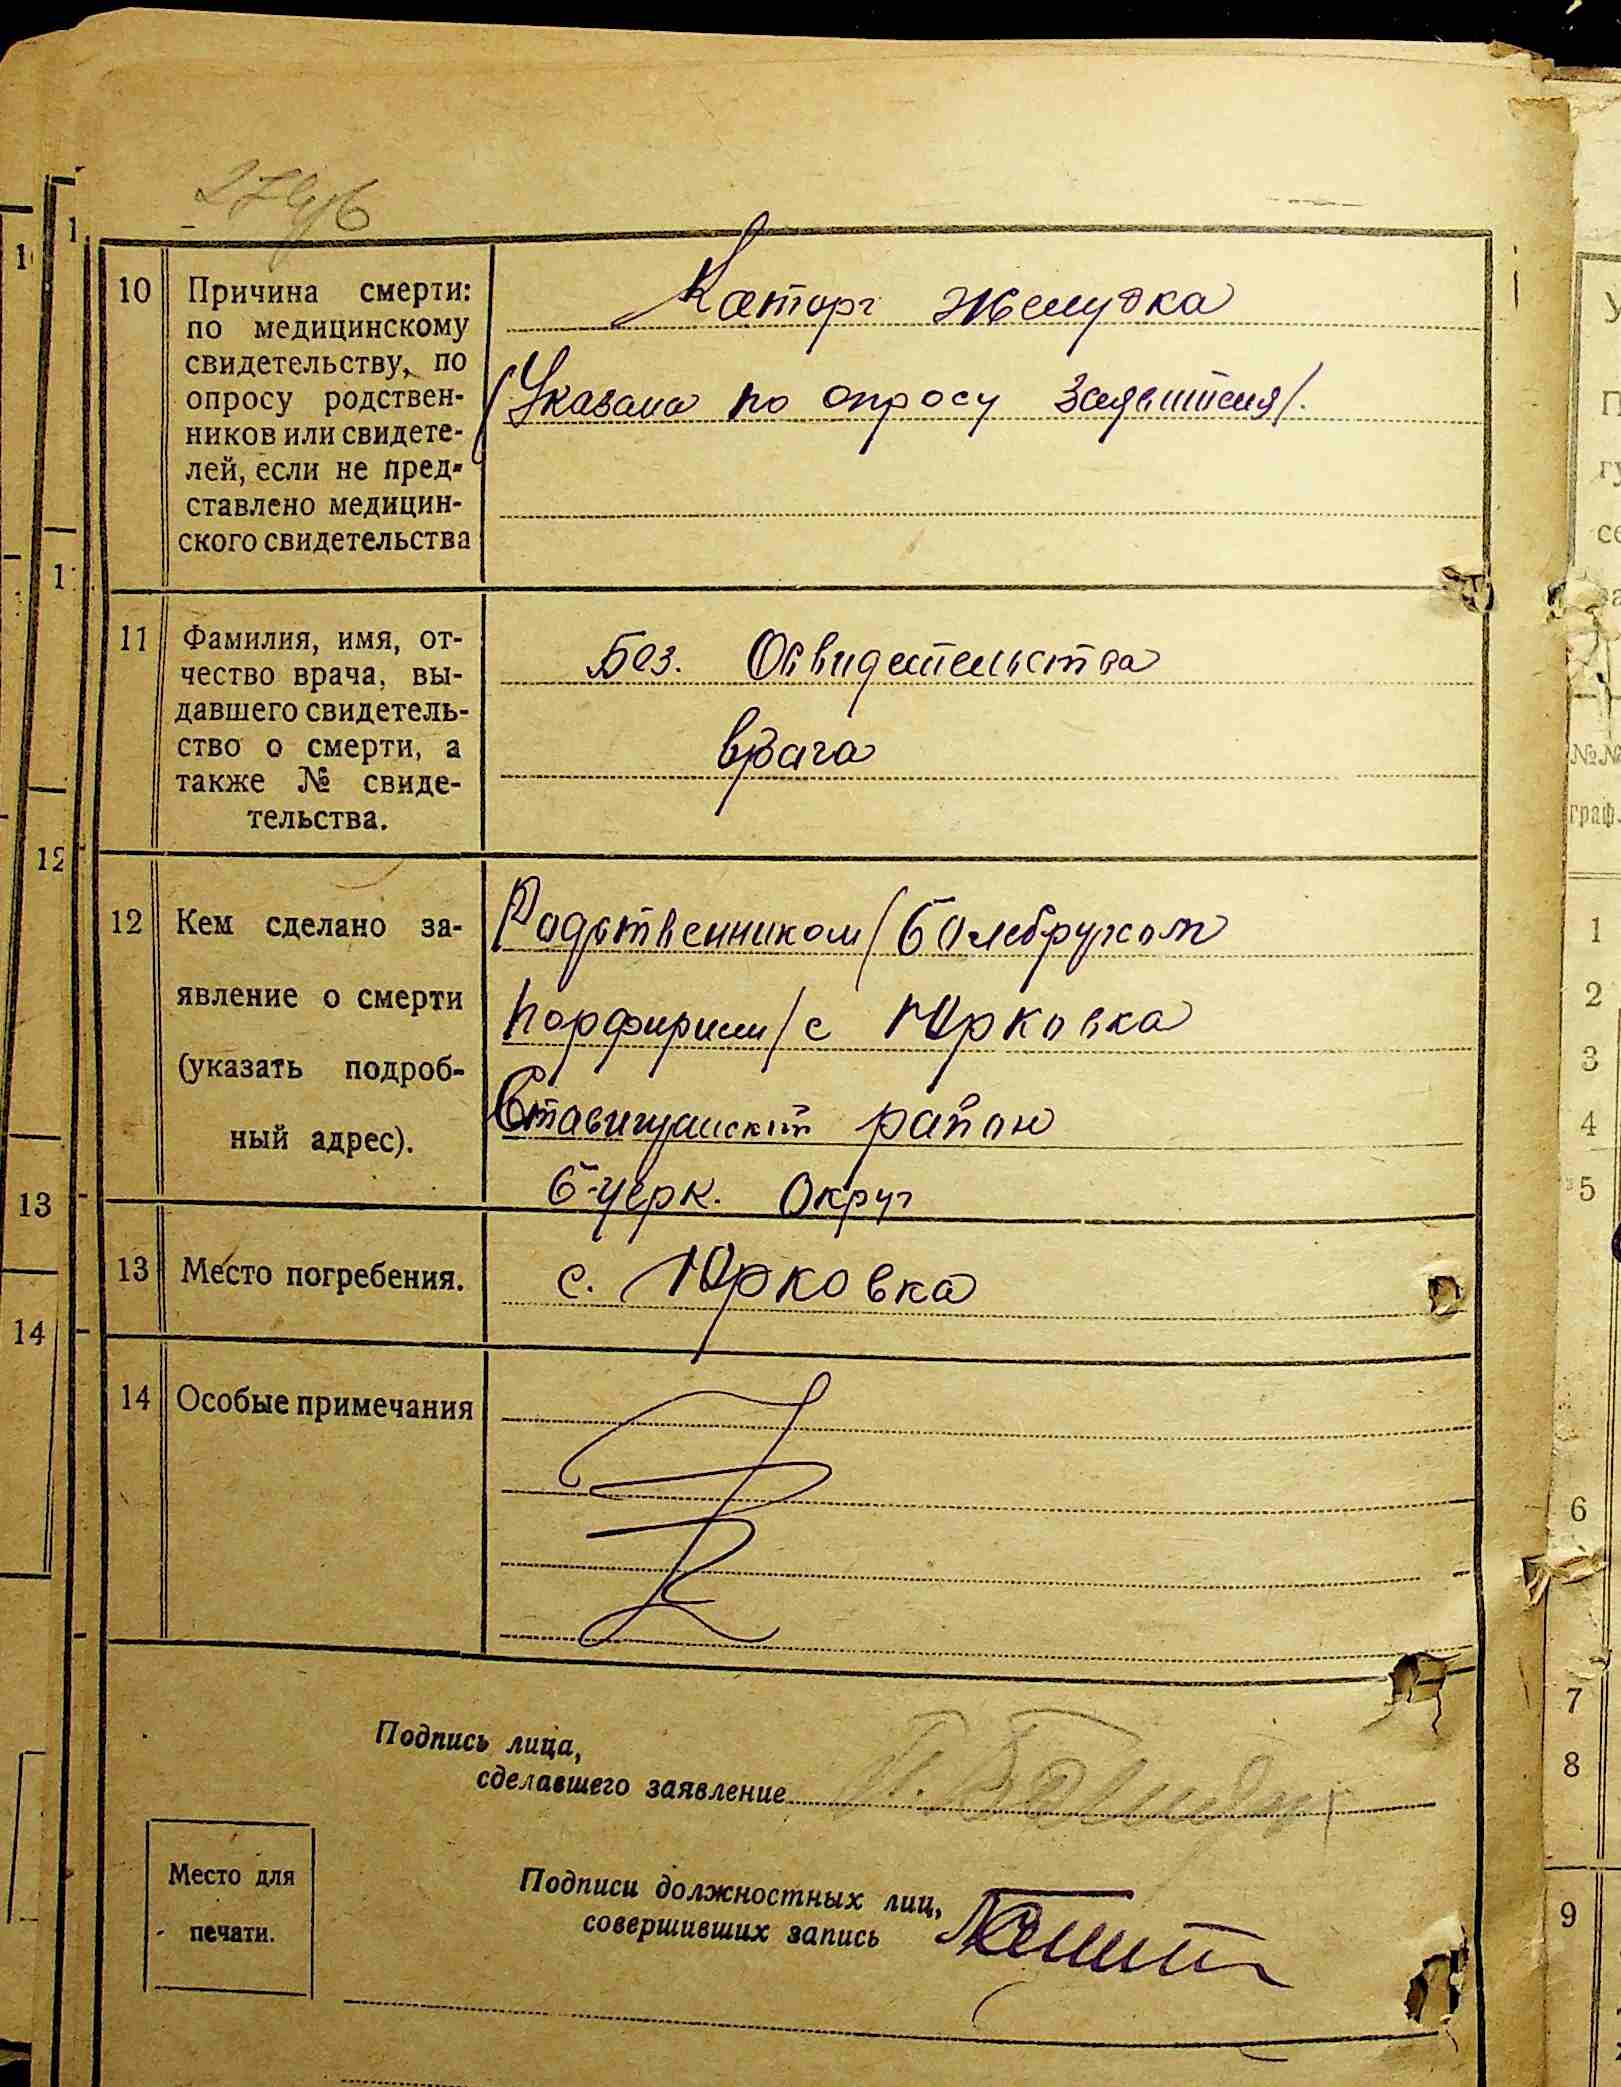 10 Причина смерти:
по медицинскому
свидетельству, по
опросу родствен-
ников или свидете-
лей, если не пред-
ставлено медицин-
ского свидетельства
Катторг желудка
(Указана по опросу заявителя).
11 Фамилия, имя, от-
чество врача, вы-
давшего свидетель-
ство о смерти, а
также № свиде-
тельства.
Без. Освидетельства
врага
12 Кем сделано за-
явление о смерти
(указать подроб-
ный адрес).
Родственником
Порфирием/с Юрковка
район
б-церк. Округ
13 Место погребения.
с. Юрковка
14 Особые примечания
Подпись лица,
сделавшего заявление
Место для
печати.
Подписи должностных лиц,
совершивших запись
1
1
1
12
13
14
№№
граф.
1
2
3
4
5
6
7
8
9